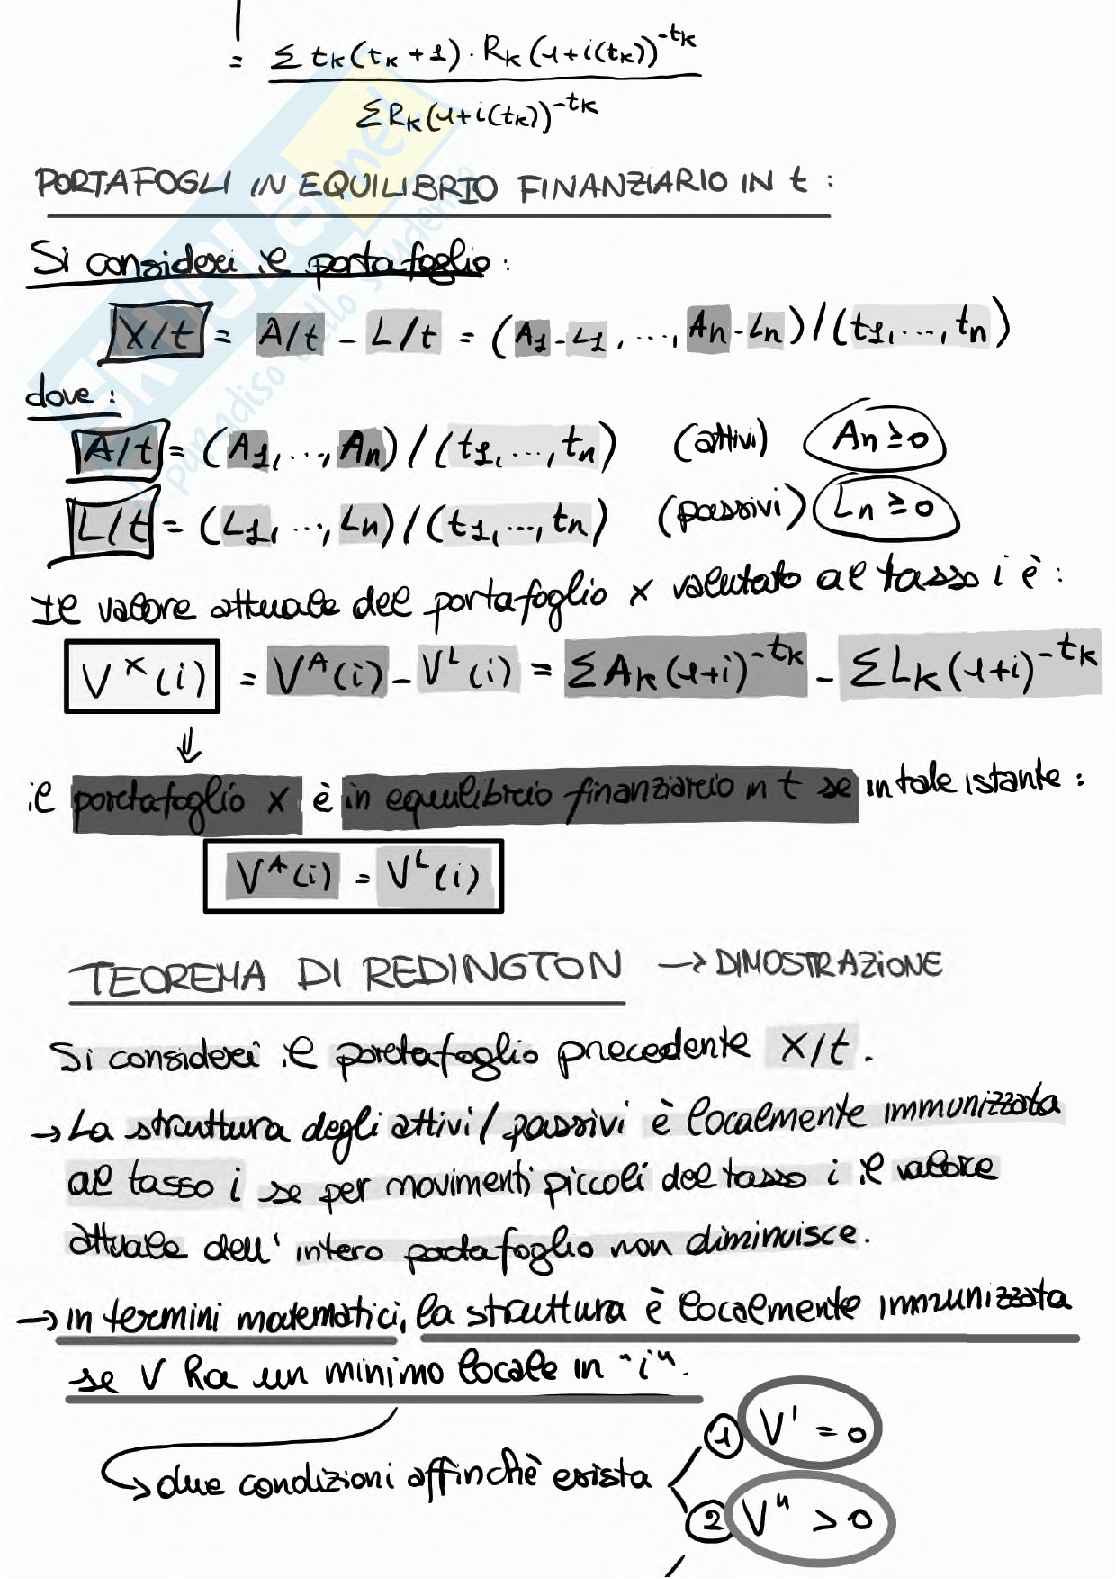 = Σ tk(tk+1)·Rk(1+i(tk))^-tk
ΣRk(1+i(tk))^-tk
PORTAFOGLI IN EQUILIBRIO FINANZIARIO IN t :
Si consideri il portafoglio:
X/t = A/t - L/t = (A1-L1, ..., An-Ln)/(t1,...,tn)
dove :
A/t = (A1,...,An)/(t1,...,tn) (attivi) An≥0
L/t = (L1,...,Ln)/(t1,...,tn) (passivi) Ln≥0
Il valore attuale del portafoglio x valutato al tasso i è :
V^x(i) = V^A(i) - V^L(i) = ΣAk(1+i)^-tk - ΣLk(1+i)^-tk
⇓
il portafoglio x è in equilibrio finanziario in t se in tale istante :
V^A(i) = V^L(i)
TEOREMA DI REDINGTON → DIMOSTRAZIONE
Si consideri il portafoglio precedente X/t.
→ La struttura degli attivi/passivi è localmente immunizzata
al tasso i se per movimenti piccoli del tasso i il valore
attuale dell' intero portafoglio non diminuisce.
→ in termini matematici, la struttura è localmente immunizzata
se V ha un minimo locale in "i".
① V' = 0
↳ due condizioni affinchè esista
② V" > 0
SKUOLA.net
paradiso dello studente